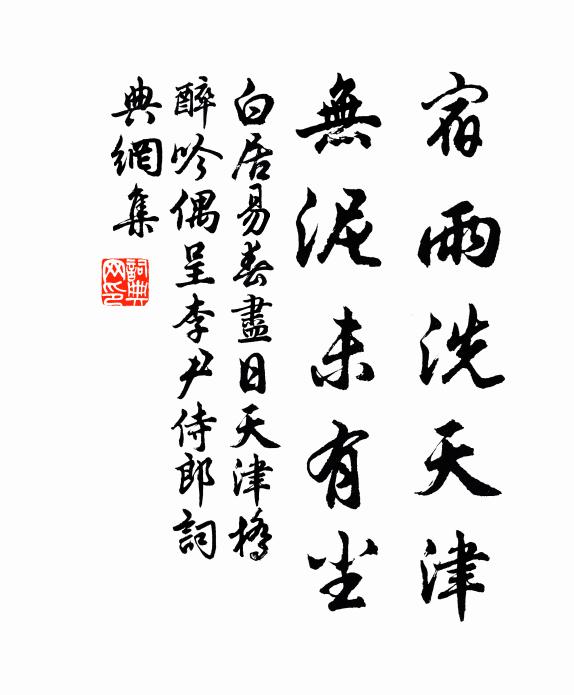 宿雨洗天津
無泥未有尘
白居易春盡日天津橋
醉吟偶呈李尹侍郎詞
典網集
詞典網印